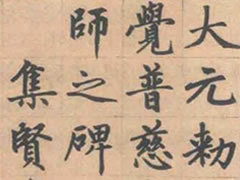 大元勅
覺普慈
師之碑
集賢